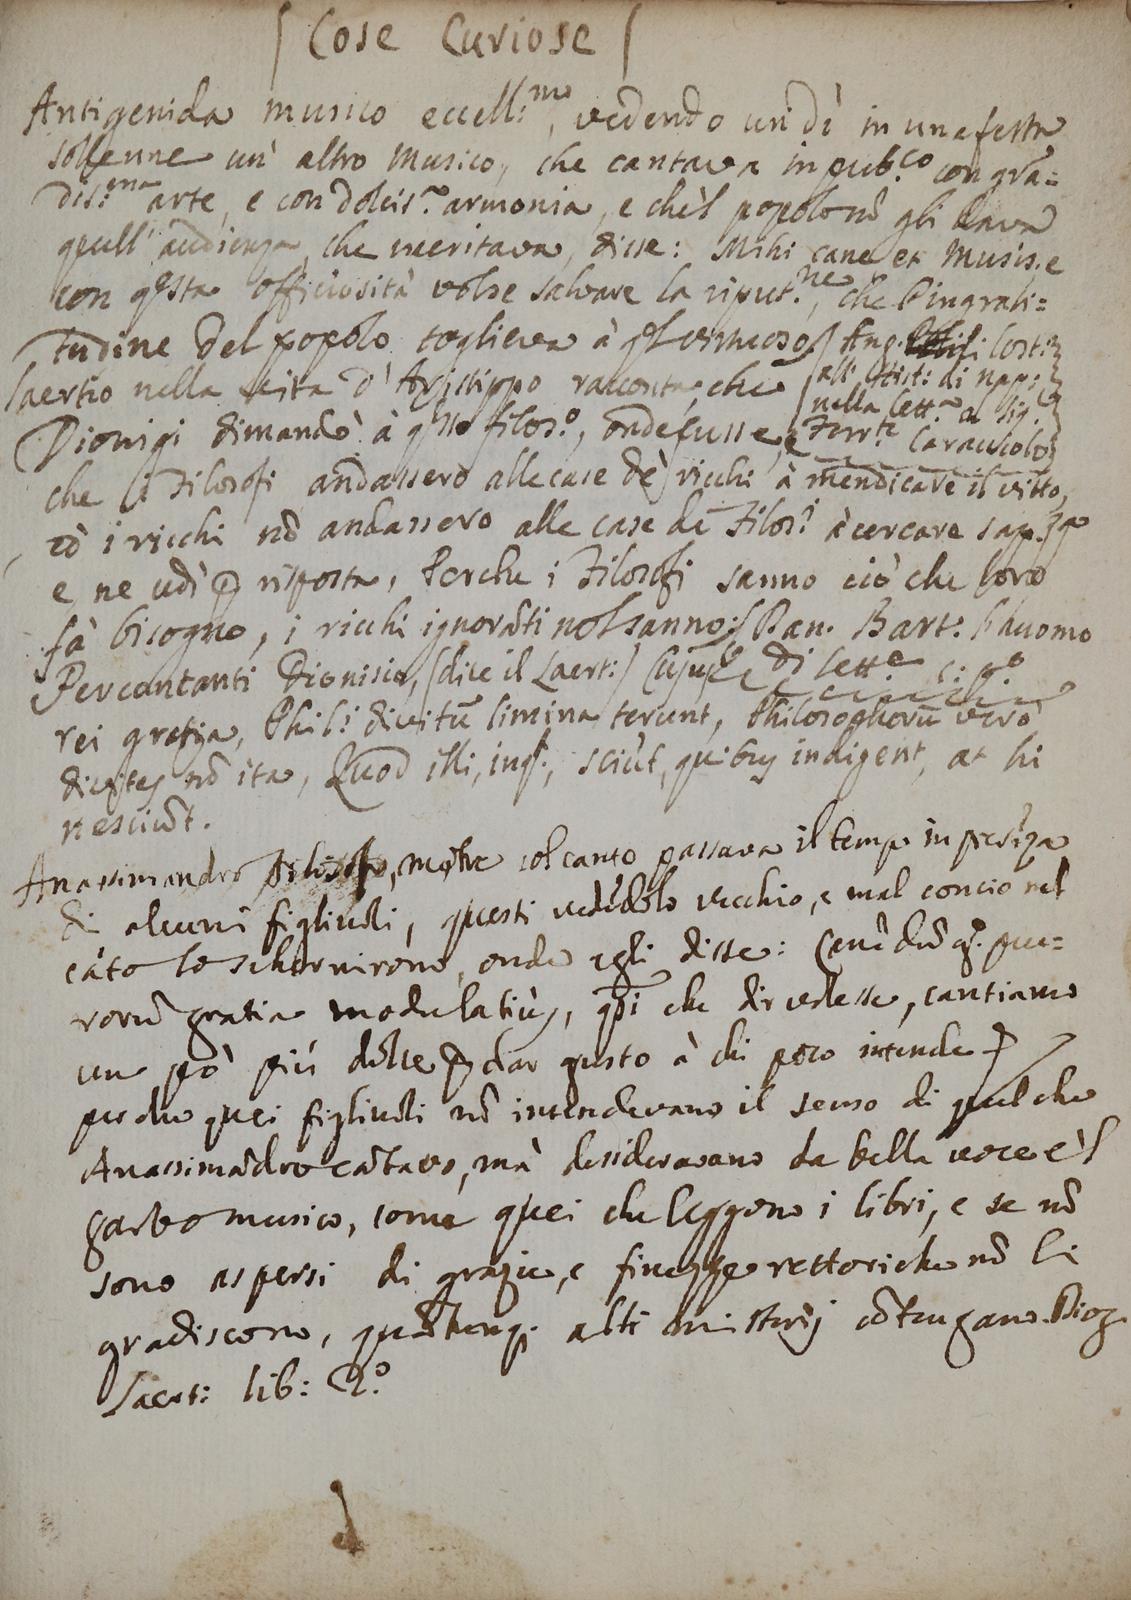 Cose Curiose
Antigenida musico eccell:mo, vedendo un dì in una festa
sollenne un' altro Musico, che cantava in pub:co con grã=
dis:ma arte, e con dolcis:a armonia, e che'l popolo nõ gli dava
quell' audienza, che meritava, disse: Mihi cane et Musis. e
con qsta officiosità volse salvare la riput:ne, che l'ingrati=
tudine del popolo toglieva à ql virtuoso / Ang. Cost:
all' Hist: di Nap:
nella lett:a al Sig.
Ferr:te Caracciolo
Laertio nella vita d' Aristippo racconta, che
Dionigi dimandò à qsto filos:o, onde fusse, e
che i Filosofi andassero alle case dè ricchi à mendicare il vitto,
et i ricchi nõ andassero alle case dè Filos:i à cercare sap:za
e ne udì p risposta, Perche i Filosofi sanno ciò che loro
fà bisogno, i ricchi ignorãti nol sanno: / Pan. Bart. l'huomo
di lett:e
Percontanti Dionisio, (dice il Laert:) Cujus
rei gratia, Phil:i divitũ limina terunt, Philosophorũ verò
divites nõ ita, Quod illi, inqt, sciũt, quibus indigent, at hi
nesciũt.
Anassimandro Filosofo, mẽtre col canto passava il tempo in presẽza
di alcuni figliuoli, questi vedẽdolo vecchio, e mal concio nel
cãto lo schernirono, onde egli disse: Canẽdũ q. pue=
rorũ gratia modulatius, qsi che dir volesse, cantiamo
un pò piú dolce p dar gusto à chi poco intende
perche quei figliuoli nõ intendevano il senso di quel che
Anassimãdro cãtava, mà desideravano la bella voce e'l
garbo musico, come quei che leggono i libri, e se nõ
sono aspersi di grazie, e finezze rettoriche nõ li
gradiscono, quãtunq. alti misterij cõtengano. Diog.
Laert: lib: 2.o